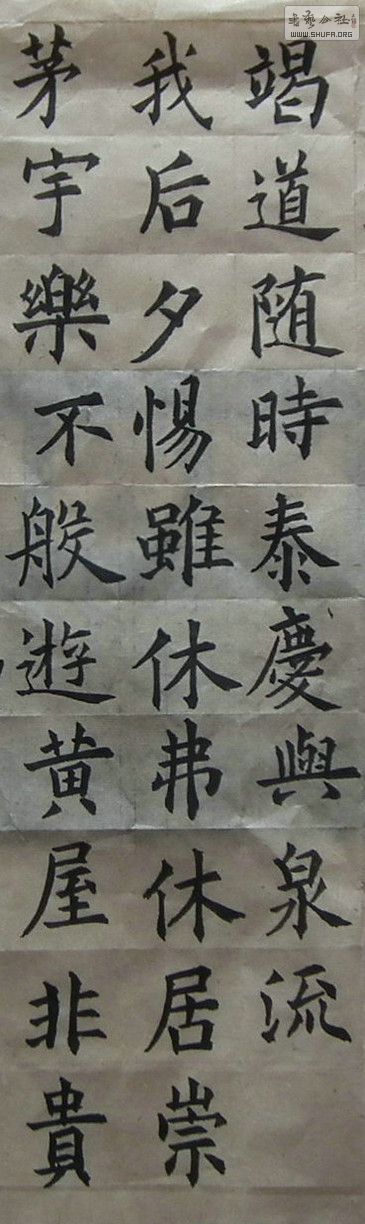 書藝公社
WWW.SHUFA.ORG
竭道随時泰慶與泉流
我后夕惕雖休弗休居崇
茅宇樂不般遊黄屋非貴